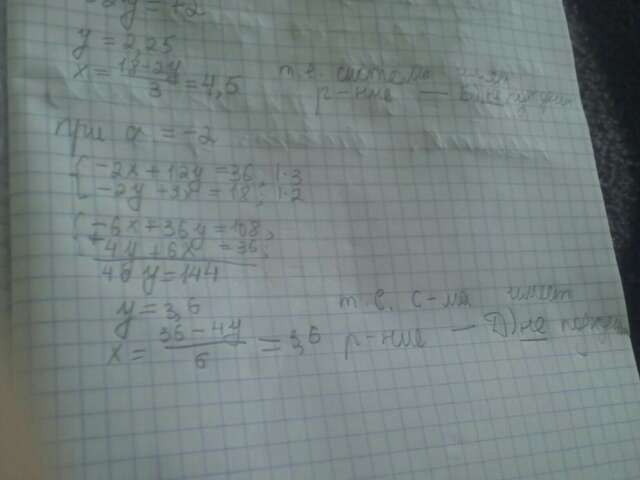 y = 2,25
x = \frac{18-2y}{3} = 4,5
т.е. система имеет
р-ние —
При a = -2
{-2x + 12y = 36, | · 3
-2y + 3x = 18; | · 2
{-6x + 36y = 108,
-4y + 6x = 36;
y = 144
y = 3,6
x = \frac{36-4y}{6} = 3,6
т.е. с-ма имеет
р-ние — Д) не